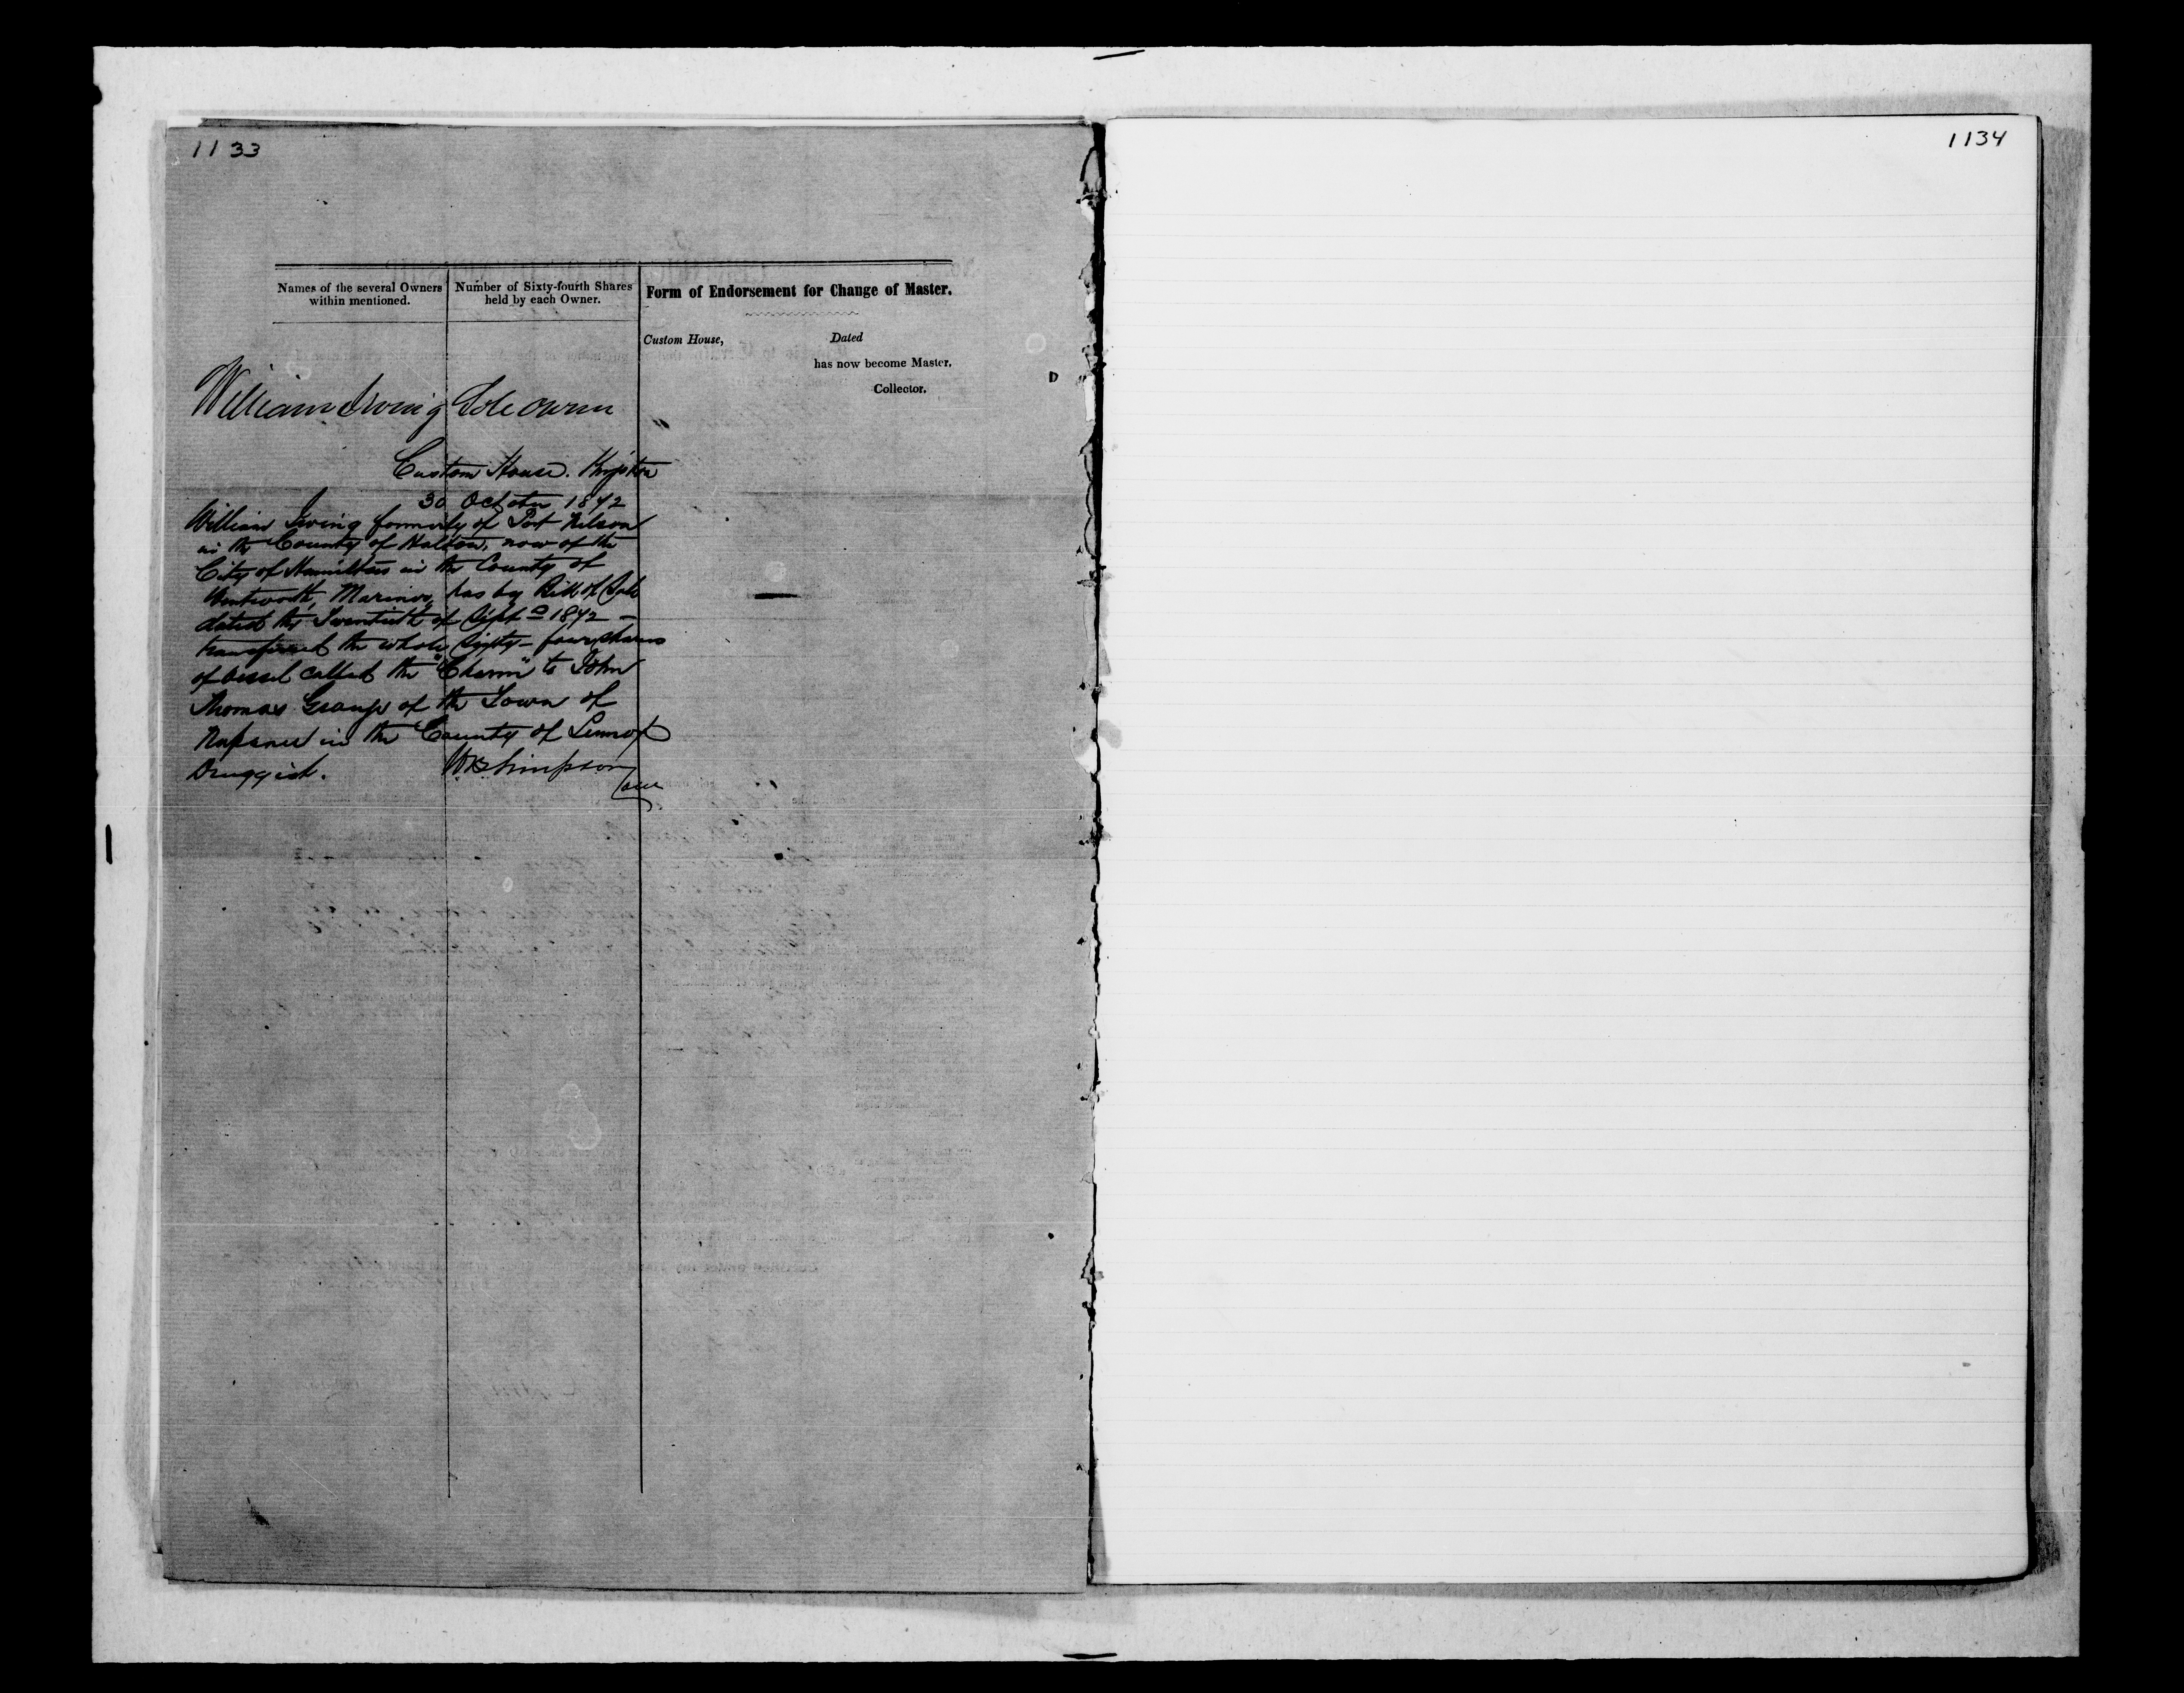 1133
Names of the several Owners within mentioned.
Number of Sixty-fourth Shares held by each Owner.
Form of Endorsement for Change of Master.
Custom House,
Dated
has now become Master.
Collector.
William Irving Sole Owner
Custom House. Kingston
30 October 1872
William Irving formerly of Port Nelson
in the County of Halton, now of the
City of Hamilton in the County of
Wentworth, Mariner, has by Bill of Sale
dated the Twentieth of Sept 1872 —
transferred the whole Sixty-four shares
of vessel called the "Charm" to John
Thomas Grange of the Town of
Napanee in the County of Lennox
Druggist.
WB Simpson
1134